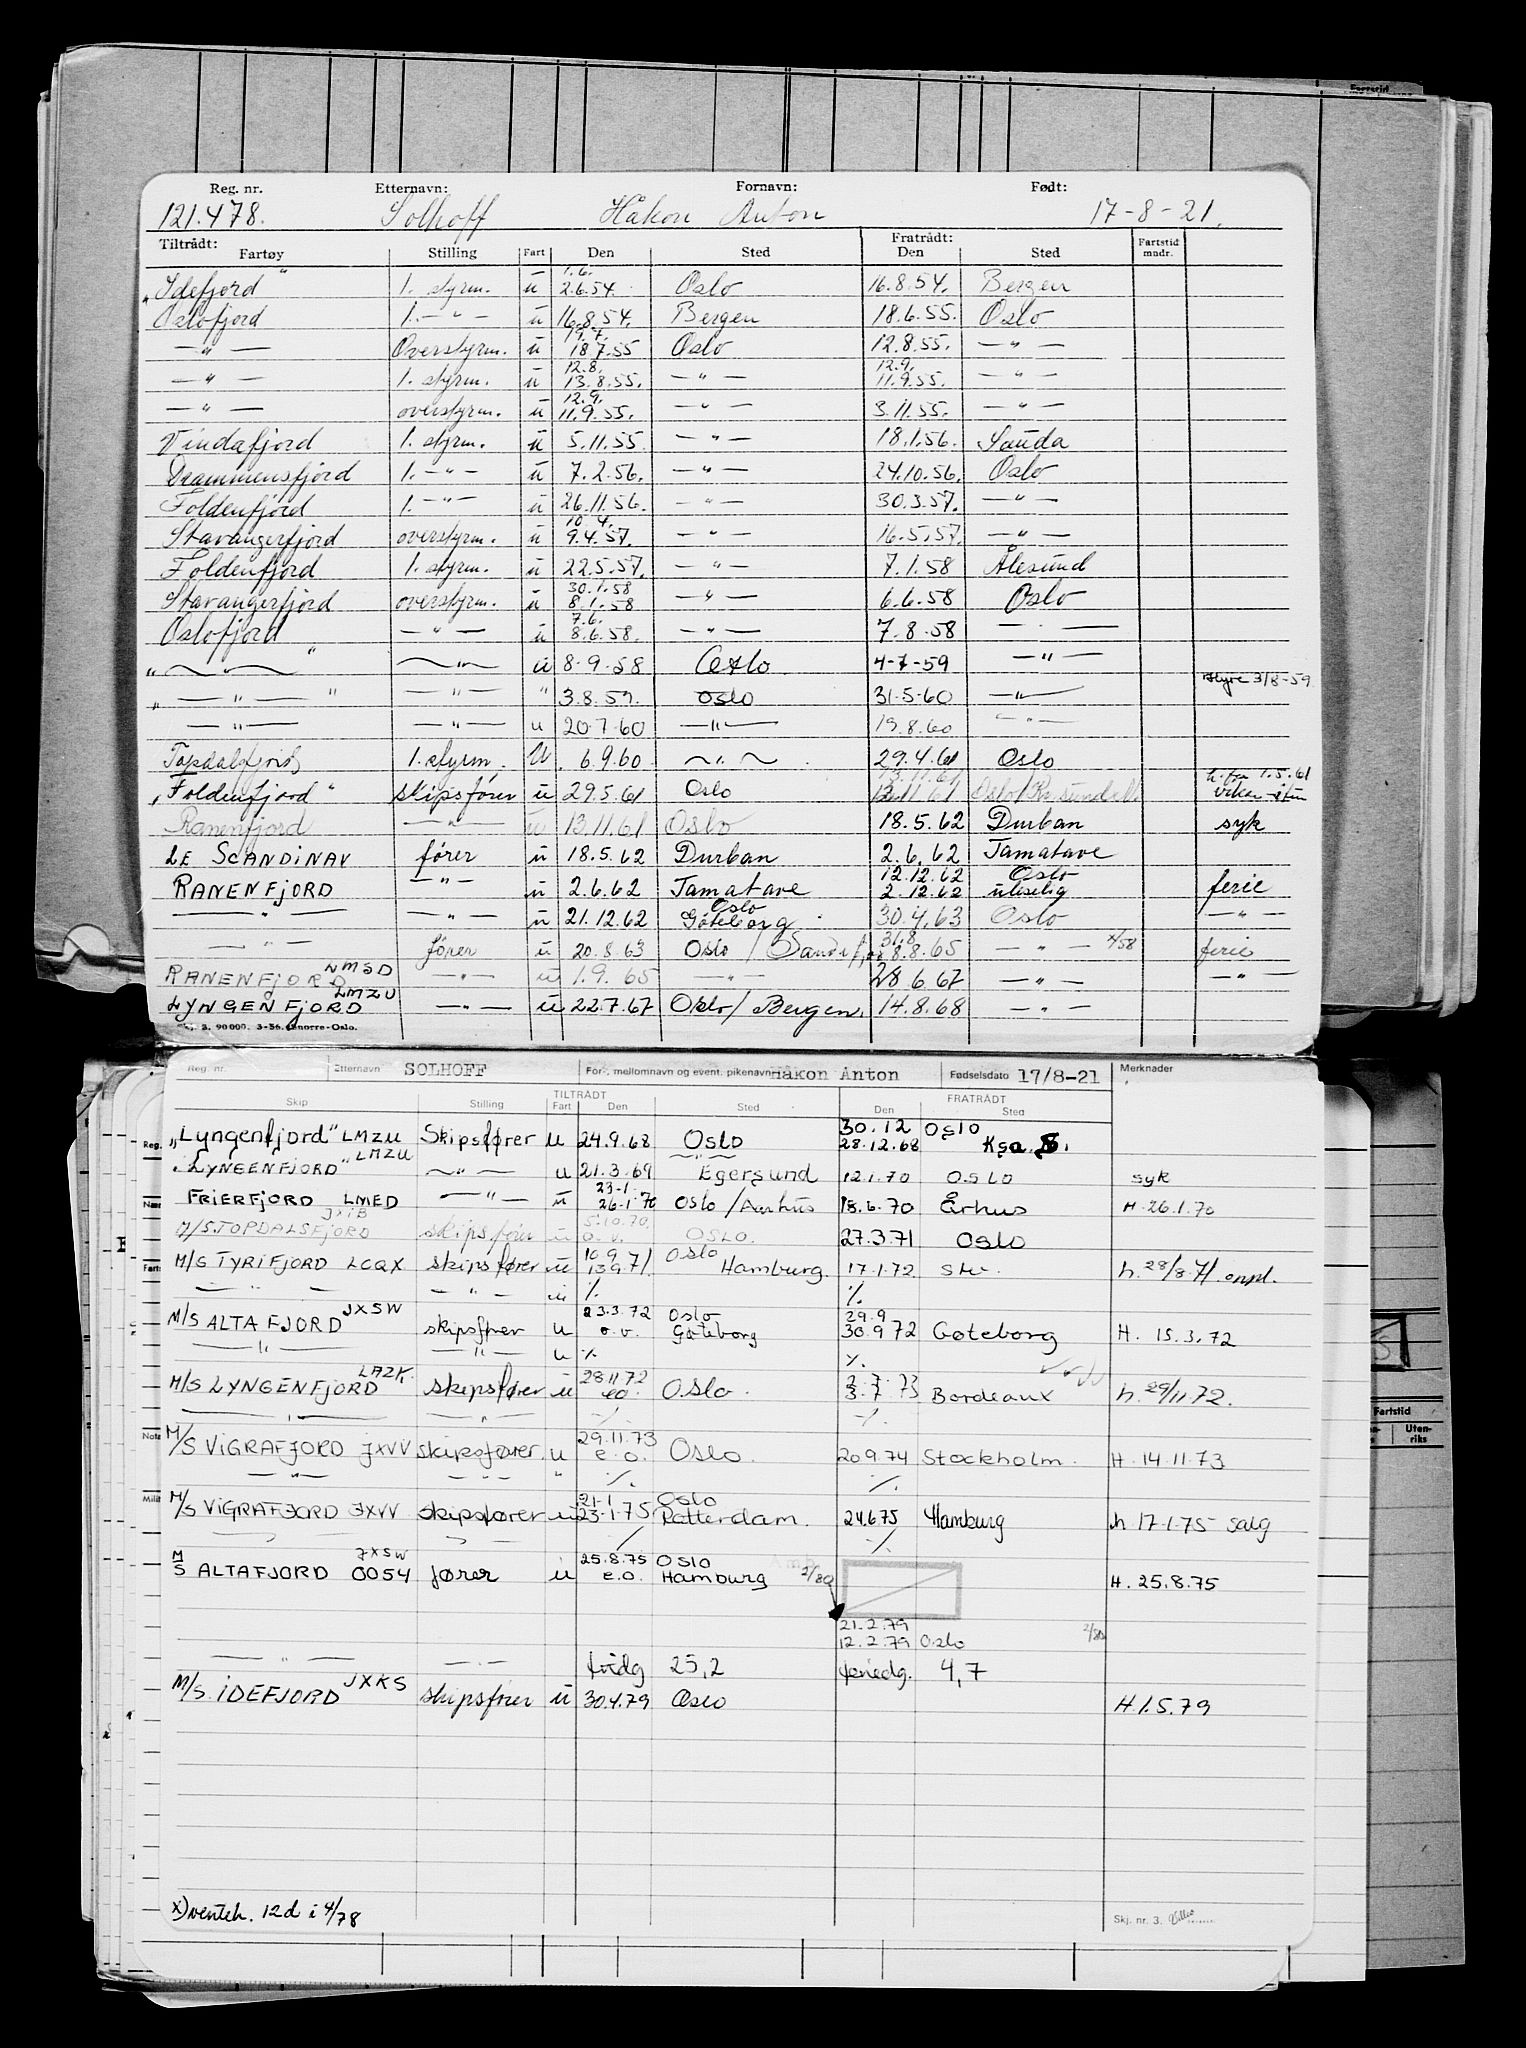 Fartstid
Reg. nr. Etternavn: Fornavn: Født:
121.478. Solhoff Håkon Anton 17-8-21.
Tiltrådt: Fratrådt: Fartstid
Fartøy Stilling Fart Den Sted Den Sted mndr.
1.6.
"Idefjord" 1. styrm. u 2.6.54. Oslo 16.8.54. Bergen
Oslofjord 1. — " — u 16.8.54. Bergen 18.6.55. Oslo
19.7.
— " — Overstyrm. u 18.7.55 Oslo 12.8.55. — " —
12.8. 12.9.
— " — 1. styrm. u 13.8.55. — " — 11.9.55. — " —
12.9.
— " — overstyrm. u 11.9.55. — " — 3.11.55. — " —
Vindafjord 1. styrm. u 5.11.55. — " — 18.1.56. Sauda
Drammensfjord 1. — " — u 7.2.56. — " — 24.10.56. Oslo
Foldenfjord 1. — " — u 26.11.56. — " — 30.3.57. — " —
10.4.
Stavangerfjord overstyrm. u 9.4.57. — " — 16.5.57. — " —
Foldenfjord 1. styrm. u 22.5.57. — " — 7.1.58 Ålesund
30.1.58
Stavangerfjord overstyrm. u 8.1.58 — " — 6.6.58 Oslo
7.6.
Oslofjord — " — u 8.6.58. — " — 7.8.58 — " —
" — " — " — " — u 8-9-58 Oslo 4-7-59 — " —
" — " — " — " — " 3.8.59. Oslo 31-5-60 — " — styre 3/8-59
— " — — " — u 20.7.60 — " — 19.8.60 — " —
Topdalsfjord 1. styrm. u 6.9.60 — " — 29.4.61 Oslo
13.11.61 h. fra 1.5.61
"Foldenfjord" skipsfører u 29.5.61 Oslo 12.11.61 Oslo/Kr.sund
Ranenfjord — " — u 13.11.61 Oslo 18.5.62 Durban syk
LE SCANDINAV fører u 18.5.62 Durban 2.6.62 Tamatave
12.12.62 Oslo
RANENFJORD — " — u 2.6.62 Tamatave 2.12.62 uleselig ferie
Oslo
— " — — " — u 21.12.62 Göteborg 30.4.63 Oslo — " —
31.8.
— " — fører u 20.8.63 Oslo / 8.8.65 — " — x/58 ferie
RANENFJORD LMSD — " — u 1.9.65 — " — 28.6.67 — " — — " —
LYNGENFJORD LMZU — " — u 22.7.67 Oslo/Bergen. 14.8.68 — " —
Skj. 3. 90000. 3-56. Gnorre-Oslo.
Reg. nr. Etternavn SOLHOFF For-, mellomnavn og event. pikenavn Håkon Anton Fødselsdato 17/8-21 Merknader
TILTRÅDT FRATRÅDT
Skip Stilling Fart Den Sted Den Sted
30.12 Oslo
"Lyngenfjord" LMZU Skipsfører u 24.9.68 Oslo 28.12.68 Ksa. S.
"LYNGENFJORD" LMZU — " — u 21.3.69 Egersund 12.1.70 OSLO syk
23-1
FRIERFJORD LMED — " — u 26-1-70 Oslo/Aarhus 18.6.70 Århus H. 26.1.70
JXIB 5.10.70
M/S TOPDALSFJORD skipsfører u o.v. OSLO. 27.3.71 Oslo
10.9. Oslo
M/S TYRIFJORD LCQX skipsfører u 13.9.71. Hamburg. 17.1.72 Stv. h. 28/8.71 onpl.
— " — — " — u ./. ./.
JXSW 23.3.72 Oslo 29.9
M/S ALTAFJORD skipsfører u o.v. Gøteborg 30.9.72 Gøteborg H. 15.3.72
— " — — " — u ./. ./.
LAZK. 28.11.72 2.7.73
M/S LYNGENFJORD skipsfører u e.o. Oslo. 3.7.73 Bordeaux h. 29/11.72.
— " — — " — ./. ./.
29.11.73
M/S VIGRAFJORD JXVV skipsfører. u e.o. Oslo. 20.9.74 Stockholm. H. 14.11.73
— " — — " — " ./. ./.
21-1 Oslo
M/S VIGRAFJORD JXVV skipsfører u 23-1-75 Rotterdam. 24.6.75 Hamburg h 17-1-75 salg
./. ./.
JXSW 25.8.75 OSLO
M/S ALTAFJORD 0054 fører u e.o. Hamburg 2/80 H. 25.8.75
21.2.79
12.2.79 Oslo 2/80
— " — — " — fridg 25,2 feriedg. 4,7
M/S. IDEFJORD JXKS skipsfører u 30.4.79 Oslo H. 1.5.79
x) venteh. 12d i 4/78
Skj. nr. 3.
Fartstid
Uten-
riks